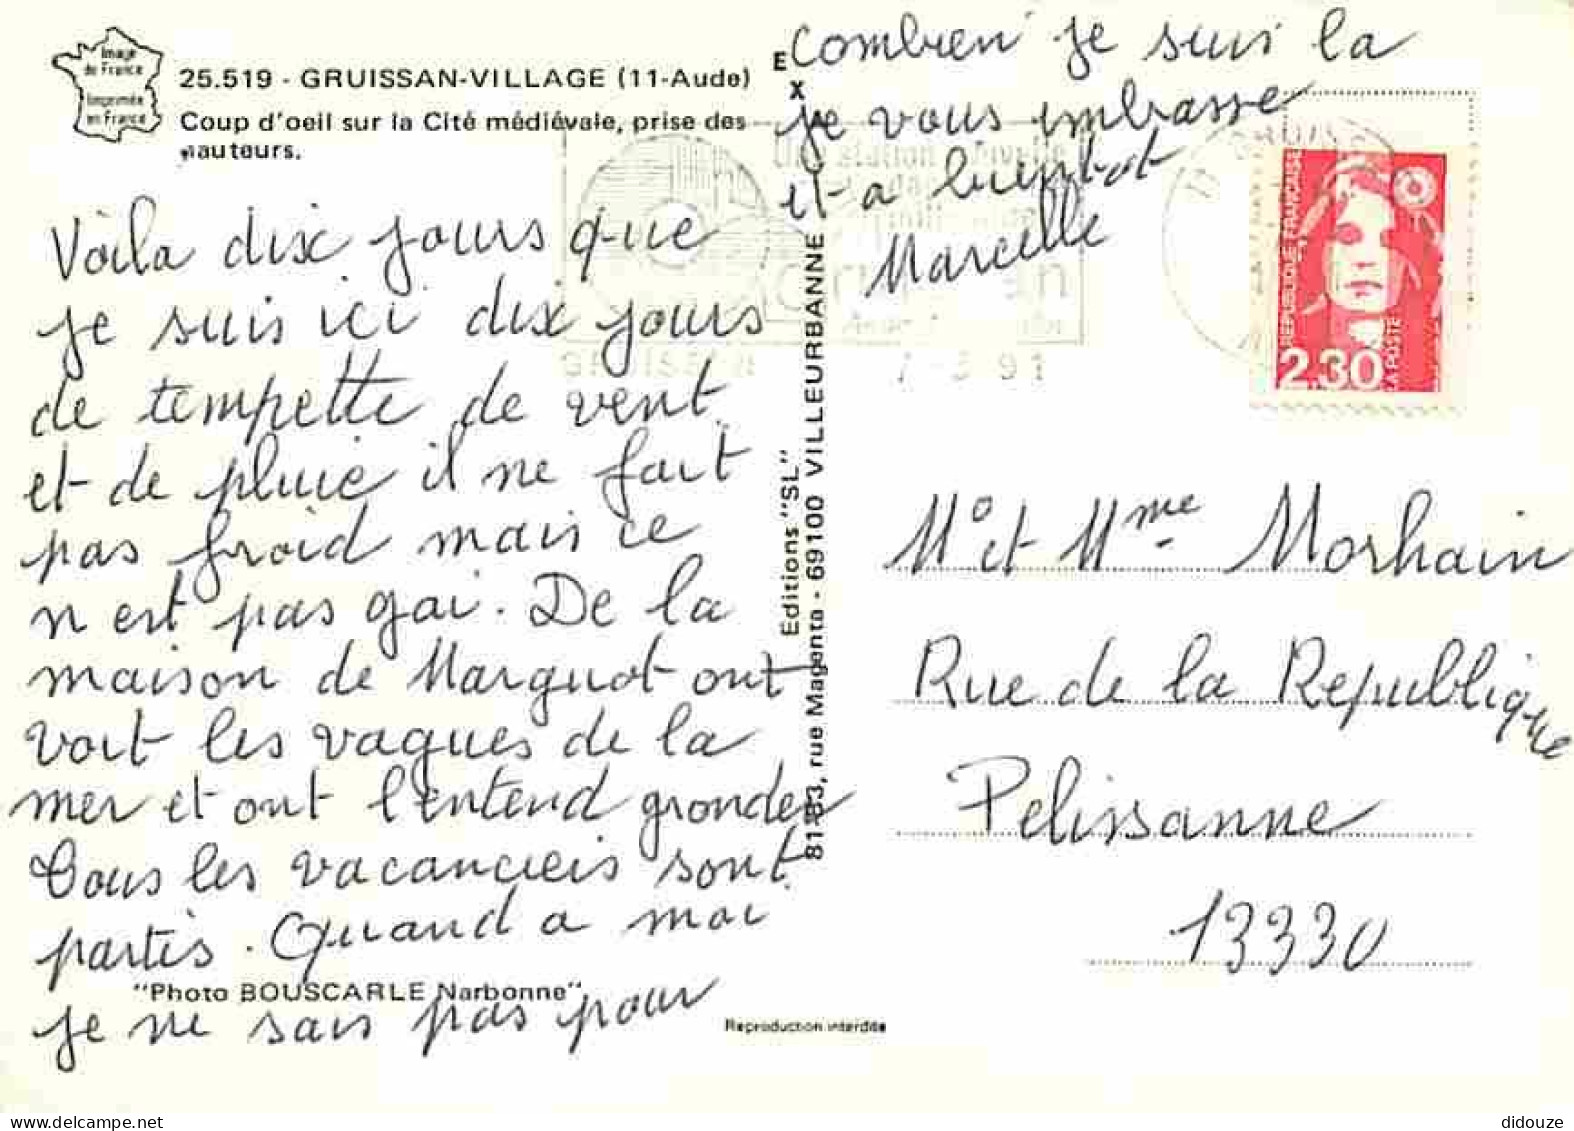 Image
de France
Imprimée
en France
25.519 - GRUISSAN-VILLAGE (11-Aude)
Coup d'oeil sur la Cité médiévale, prise des
hauteurs.
Voila dix jours que
je suis ici dix jours
de tempette de vent
et de pluie il ne fait
pas froid mais ce
n est pas gai. De la
maison de Marguot ont
voit les vagues de la
mer et ont l'entend gronder
Tous les vacanciers sont
partis. Quand a moi
je ne sais pas pour
combien je suis la
je vous embrasse
et a bientot
Marcelle
"Photo BOUSCARLE Narbonne"
Reproduction interdite
EX
Editions "SL"
81-83, rue Magenta - 69100 VILLEURBANNE
Une station nouvelle
GRUISSAN
91
REPUBLIQUE FRANÇAISE
2,30
LA POSTE
Mr et Mme Morhain
Rue de la Republique
Pelissanne
13330
didouze